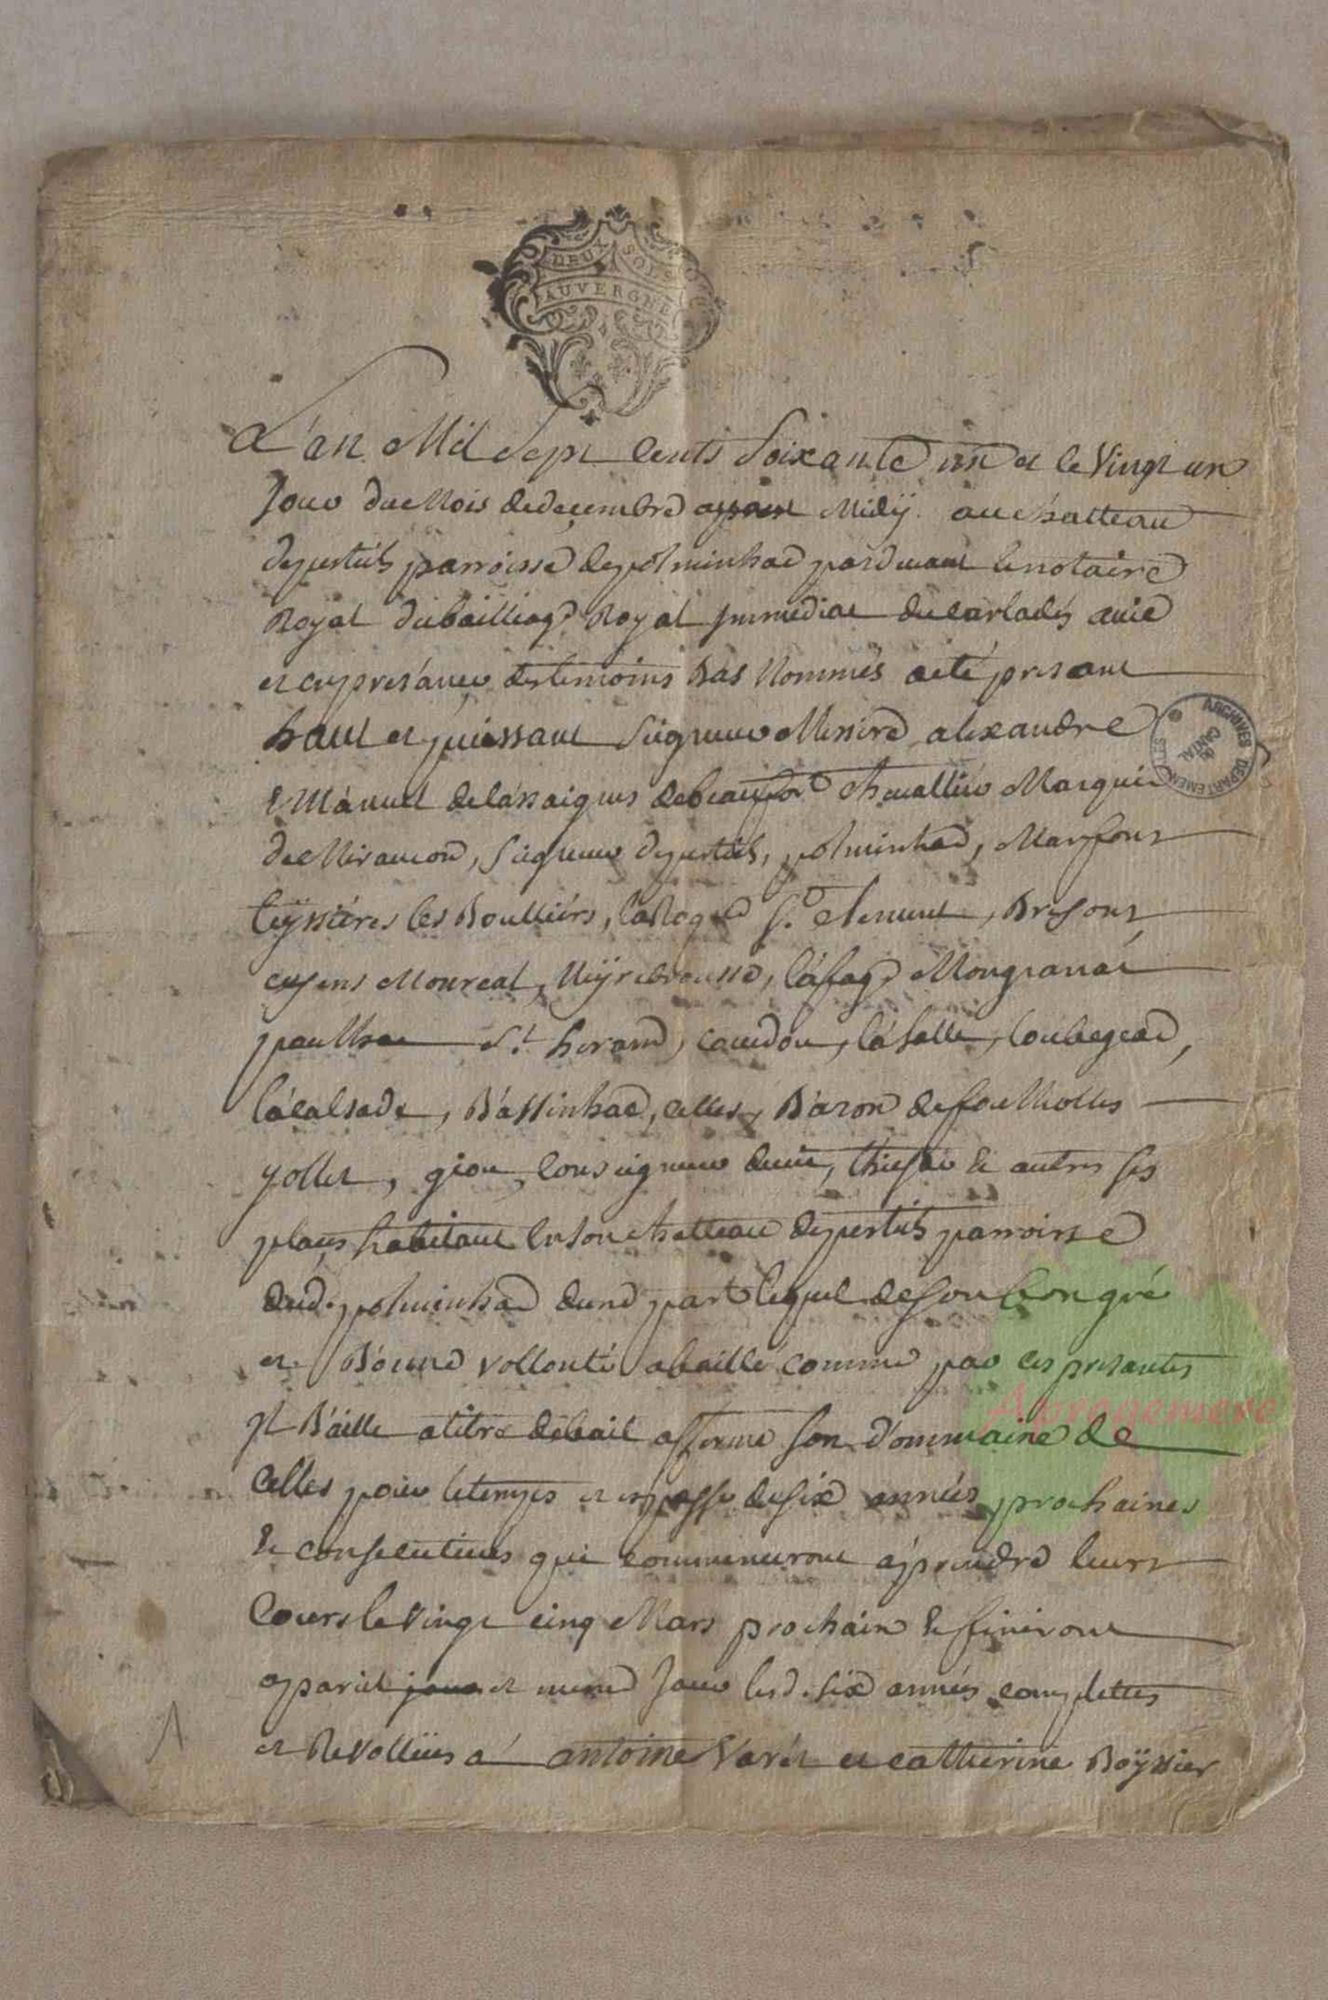 DEUX SOLS
AUVERGNE
L'an Mil Sept Cents Soixante un et le Vingt un
Jour du Mois de decembre appres Midÿ au chatteau
de pesteils parroisse de polminhac pardevant le notaire
Royal du bailliage Royal Immediat du carladés a vic
et en presánce des temoins Bas Nommés a eté presant
haut et puissant Seigneur Messire alexandre
Emánuel de lássaigues de beaufort chevallier Marquis
de Miramond, seigneur de pesteils, polminhac, Marfons
teÿssiéres les Boulliérs, la Roque St. clement, Bresons
cusens Monreal, Neÿrebrousse, láfage Mongranat
paulhac St. herand, láSalle, loubegeac,
lácalsade, Bássinhac, celles, Báron de foulholles
yollet, giou, Conseigneur de vic, thiesac & autres ses
places habitant en son chatteau de pesteils parroisse
dud. polminhac dune part lequel de son bon gré
et Bonne vollonté a baillé comme par ces presantes
Jl Báille a titre de bail afferme son dommaine de
Celles pour le temps et espasse de six années prochaines
& consecutives qui commenceront á prendre leurs
Cours le vingt cinq Mars prochain & finiront
apariel et meme Jour lesd. six années complettes
et Revollües á antoine Varét et catherine Boÿssier
1
ARCHIVES DEPARTEMENTALES
du CANTAL
Aprogemere